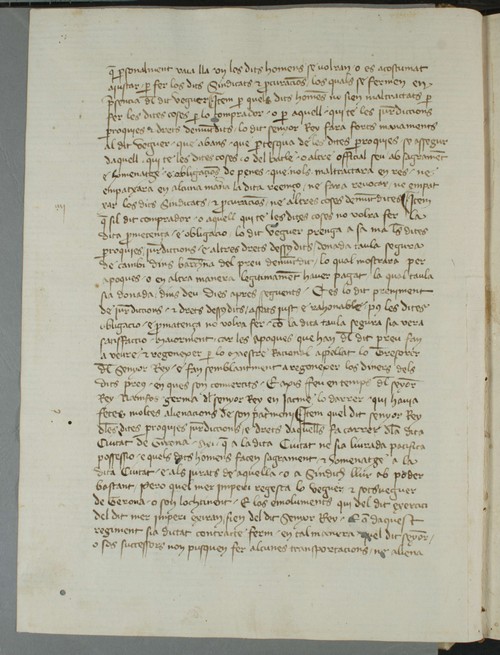 q̄ p̄sonalment vaia lla on los dits homens se volran o es acostumat
aiustar p̄ fer los dits Sindicats & p̄curacions los quals se fermen en
p̄sencia del dit veguer Item p̄ que ls dits homēs ne sien maltractats p̄
fer les dites coses p̄ lo comprador o p̄ aquell qui te les jurdiccions
proquies & drets demūt dits lo dit senyor Rey fara forts manaments
al dit veguer que abans que p̄tesqua de les dites proquies se assegur
daquell qui te les dites coses o del batle o altre official seu ab sagramēt
e homenatge e obligacions de penes que nols maltractara en res ne
empatxara en alcuna manera la dita reemço ne fara revocar ne empat
xar los dits Sindicats & p̄curacions ne altres coses demūt dites Item
q̄ si l dit comprador o aquell qui te les dites coses no volra fer la
dita p̄metença e obligacio lo dit veguer prenga a sa ma les dites
proquies jurdiccions e altres drets desūs dits donada taula segura
de cambi dins barchn̄a del preu demūt dit lo qual mostrara per
apoques o en altra manera legitimamēt haver pagat la qual taula
sia donada dins deu dies apres seguents E es lo dit preniment
de jurdiccions & drets desūs dits assats just e rahonable pq̄ les dites
obligacio e p̄matença no volra fer cō la dita taula segura sia vera
satisfaccio maiorment car les apoques que han del dit preu fan
a veure & regonexer p̄ lo maestre Racional apellat lo tresorer
del Senyor Rey e fan semblantment a regonexer los diners dels
dits preus en que son convertits E axis feu en temps del seyor
Rey namfos germa del senyor Rey en jacme lo darrer qui havia
fetes moltes alienacions de son patrimoni Item quel dit senyor Rey
les dites proquies jurdiccions e drets daquells fa carrer dela dita
Ciutat de Gerona Axi q̄ a la dita Ciutat ne sia liurada pacifica
possessio e quels dits homens facen sagrament & homenatge a la
dita Ciutat e als jurats de aquella o a Sindich llur ab poder
bastant pero quel mer imperi regesta lo veguer & sotsveguer
de Gerona o son lochtinent E los emoluments qui del dit exercici
del dit mer imperi exiran sien del dit Senyor Rey E cō daquest
regiment sia dictat contracte ferm en tal manera quel dit senyor
o sos successors non pusquen fer alcunes transportacions ne aliena